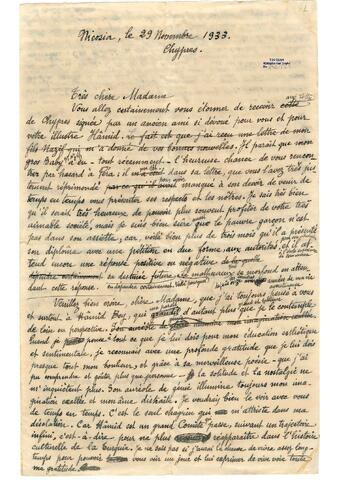 Nicosia, le 29 Novembre 1933.
Chypres.
Très chère Madame
Vous allez certainement vous étonner de recevoir cette
de Chypres signée par un ancien ami si dévoué pour vous et pour
votre illustre Hâmid. le fait est que j'ai reçu une lettre de mon
fils Nazif qui m'a donné de vos bonnes nouvelles. Il paraît que mon
gros Baby a eu - tout récemment - l'heureuse chance de vous rencon
trer par hasard à Péra; il m'a dit dans sa lettre, que vous l'avez très jus
tement réprimandé parce qu'il avait manqué à son devoir de venir de
temps en temps vous présenter ses respects et les nôtres. Je sais très bien
qu'il serait très heureux de pouvoir plus souvent profiter de votre très
aimable société, mais je suis bien sûr que le pauvre garçon n'est
pas dans son assiette, car, voilà bien plus de trois mois qu'il a présenté
son diplôme avec une pétition en due forme aux autorités, et il at
tend encore une réponse positive ou négative
sa destinée future. Le malheureux se morfond en atten
dant cette réponse.
Veuillez bien croire, chère Madame, que j'ai toujours pensé à vous
et surtout à Hâmid Bey, qui grandit d'autant plus que je le contemple
de loin en perspective.
Quand je pense tout ce que je lui dois pour mon éducation esthétique
et sentimentale. Je reconnais avec une profonde gratitude que je lui dois
presque tout mon bonheur, et grâce à sa merveilleuse poésie - que j'ai
pu comprendre et goûter plus que personne - la solitude et la nostalgie ne
m'inquiètent plus. Son auréole de génie illumine toujours mon ima
gination exaltée et mon âme distraite. Je voudrais bien le voir avec vous
de temps en temps. C'est le seul chagrin qui m'attriste dans ma
désolation. Car Hâmid est un grand Comète passé, suivant un trajectoire
infini, c'est-à-dire pour ne plus réapparaître dans l'histoire
culturelle de la Turquie. Je ne sais pas si j'aurai l'heur de vivre assez long-
temps pour pouvoir vous voir un jour et lui exprimer de vive voix toute
ma gratitude.